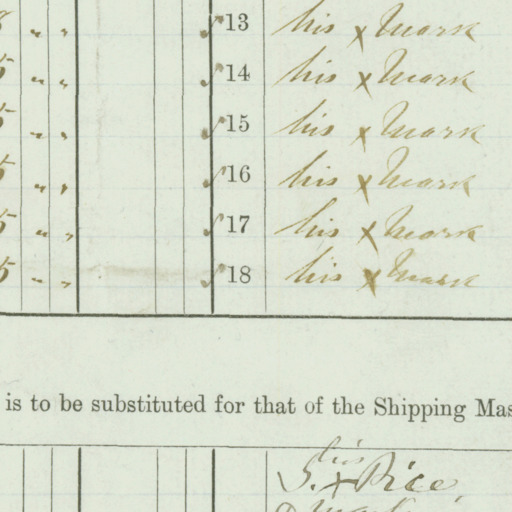 8 " " 13 his x Mark
5 " " 14 his x Mark
5 " " 15 his x Mark
5 " " 16 his x Mark
5 " " 17 his x Mark
5 " " 18 his x Mark
is to be substituted for that of the Shipping Mas
his
J. x Rice
mark